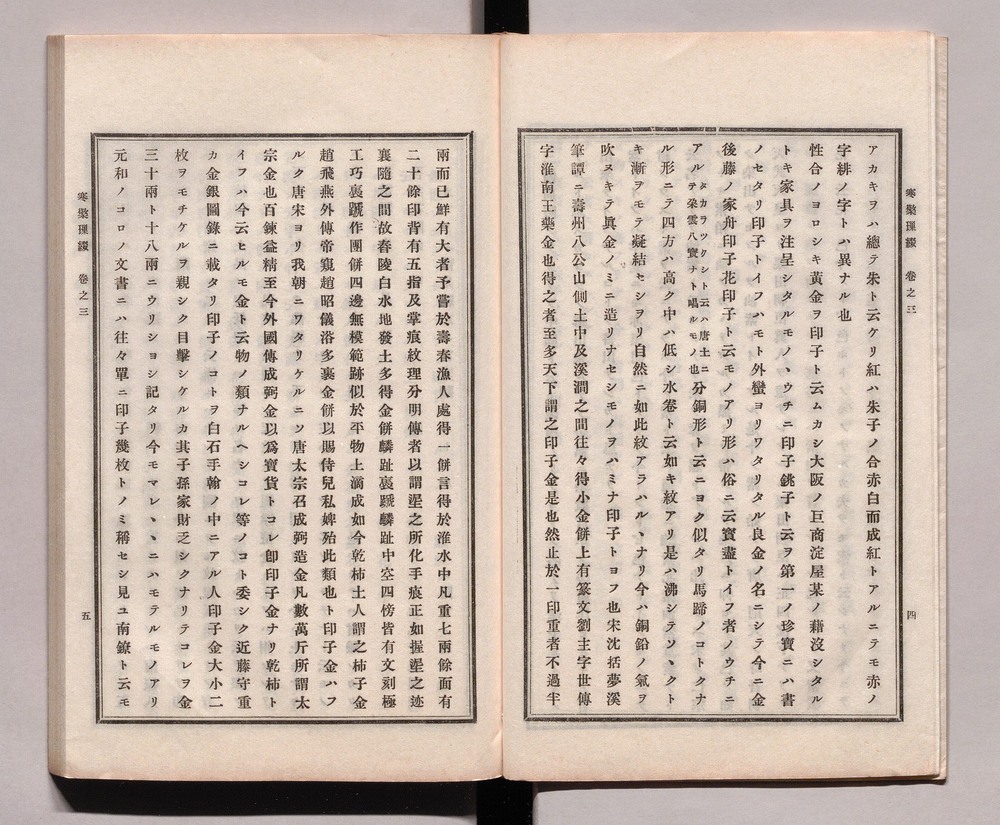 寒檠璅綴　卷之三
アカキヲハ總テ朱ト云ケリ紅ハ朱子ノ合赤白而成紅トアルニテモ赤ノ
字緋ノ字トハ異ナル也
性合ノヨロシキ黃金ヲ印子ト云ムカシ大阪ノ巨商淀屋某ノ藉沒シタル
トキ家具ヲ注呈シタルモノヽウチニ印子銚子ト云ヲ第一ノ珍寶ニハ書
ノセタリ印子トイフハモト外蠻ヨリワタリタル良金ノ名ニシテ今ニ金
後藤ノ家舟印子花印子ト云モノアリ形ハ俗ニ云寶盡トイフ者ノウチニ
アルタカラツクシト云ハ唐土ニテ梁雲八寶ナト唱ルモノ也分銅形ト云ニヨク似タリ馬蹄ノコトクナ
ル形ニテ四方ハ高ク中ハ低シ水卷ト云如キ紋アリ是ハ沸シテソヽクト
キ漸ヲモテ凝結セシヲリ自然ニ如此紋アラハルヽナリ今ハ銅鉛ノ氣ヲ
吹ヌキテ眞金ノミニ造リナセシモノヲハミナ印子トヨフ也宋沈括夢溪
筆譚ニ壽州八公山側土中及溪澗之間往々得小金餅上有篆文劉主字世傳
字淮南王藥金也得之者至多天下謂之印子金是也然止於一印重者不過半
四
兩而已鮮有大者予嘗於壽春漁人處得一餅言得於淮水中凡重七兩餘面有
二十餘印背有五指及掌痕紋理分明傳者以謂埿之所化手痕正如握埿之迹
襄隨之間故春陵白水地發土多得金餅麟趾裏蹏麟趾中空四傍皆有文刻極
工巧裏蹏作團餅四邊無模範跡似於平物上滴成如今乾柿土人謂之柿子金
趙飛燕外傳帝窺趙昭儀浴多裹金餅以賜侍兒私婢殆此類也ト印子金ハフ
ルク唐宋ヨリ我朝ニワタリケルニソ唐太宗召成弼造金凡數萬斤所謂太
宗金也百鍊益精至今外國傳成弼金以爲寶貨トコレ卽印子金ナリ乾柿ト
イフハ今云ヒルモ金ト云物ノ類ナルヘシコレ等ノコト委シク近藤守重
カ金銀圖錄ニ載タリ印子ノコトヲ白石手翰ノ中ニアル人印子金大小二
枚ヲモチケルヲ親シク目擊シケルカ其子孫家財乏シクナリテコレヲ金
三十兩ト十八兩ニウリシヨシ記タリ今モマレヽヽニハモテルモノアリ
元和ノコロノ文書ニハ往々單ニ印子幾枚トノミ稱セシ見ユ南鐐ト云モ
寒檠璅綴　卷之三
五